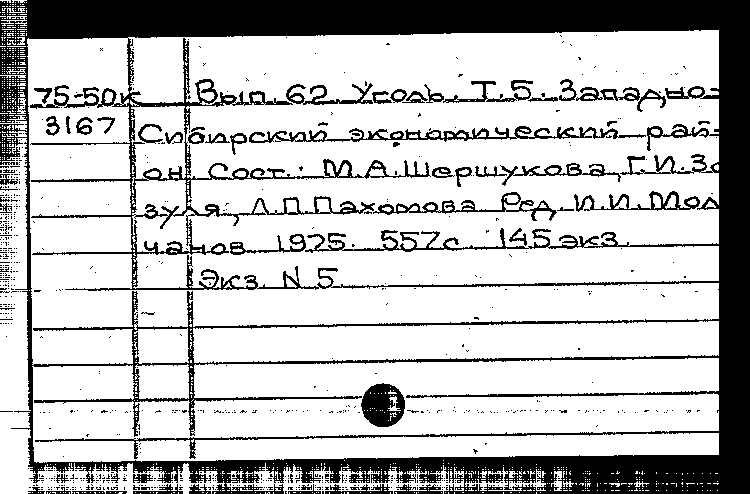 75-50к Вып. 62. Уголь. Т.5. Западно-
3167 Сибирский экономический рай-
он. Сост.: М.А.Шершукова, Г.И.За
зуля, Л.П.Пахомова. Ред. И.И.Мол
чанов. 1975. 557с. 145 экз.
Экз. N 5.